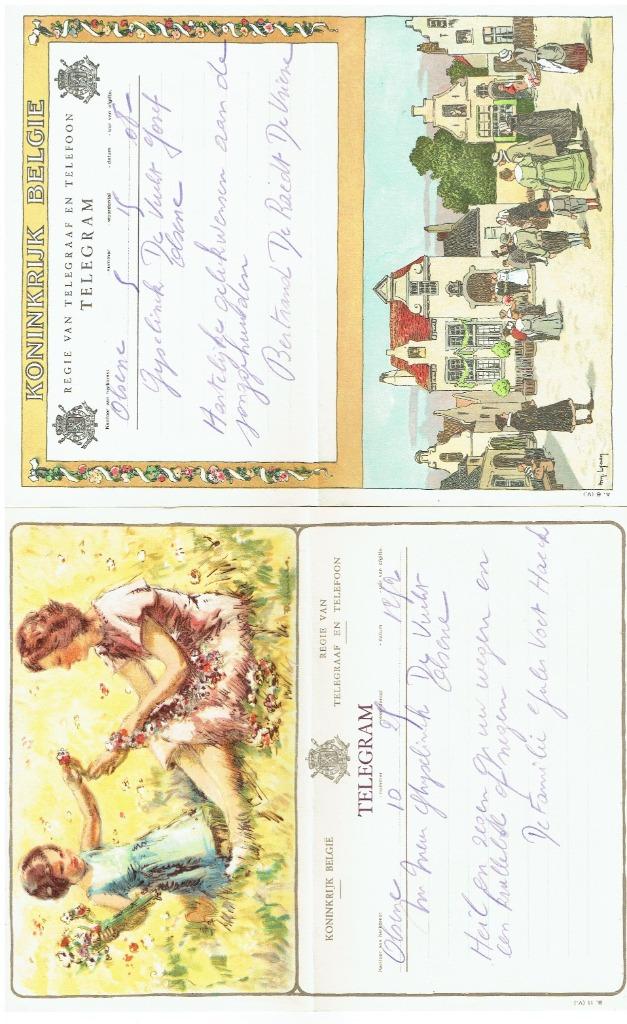 KONINKRIJK BELGIE
REGIE VAN TELEGRAAF EN TELEFOON
TELEGRAM
Kantoor van herkomst nummer woordental datum uur van afgifte
Olsene 5 15
Gyselinck De Vucht Josef
Olsene
Hartelijke gelukwensen aan de
jonggehuwden
Bertrand De Raedt De Vriese
A. 6 (V.)
KONINKRIJK BELGIE
REGIE VAN
TELEGRAAF EN TELEFOON
TELEGRAM
Kantoor van herkomst nummer woordental datum uur van afgifte
Olsene 10
Mr Mevr Ghyselinck De Vucht
Olsene
Heil en zegen op uw wegen en
een of zegen
De Familie Jules Voet Haeck
B. 11 (V.)